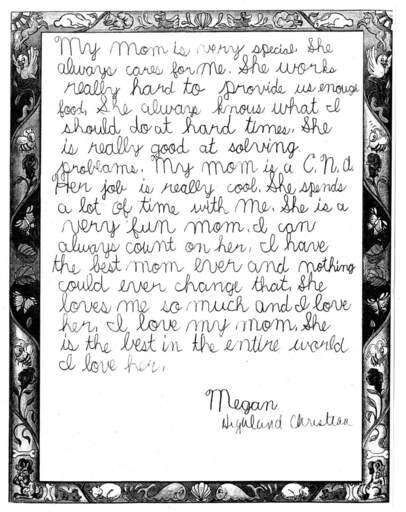 My mom is very special. She
always cares for me. She works
really hard to provide us enough
food. She always knows what I
should do at hard times. She
is really good at solving
problems. My mom is a C.N.A.
Her job is really cool. She spends
a lot of time with me. She is a
very fun mom. I can
always count on her. I have
the best mom ever and nothing
could ever change that. She
loves me so much and I love
her. I love my mom. She
is the best in the entire world
I love her.
Megan
Highland Christian